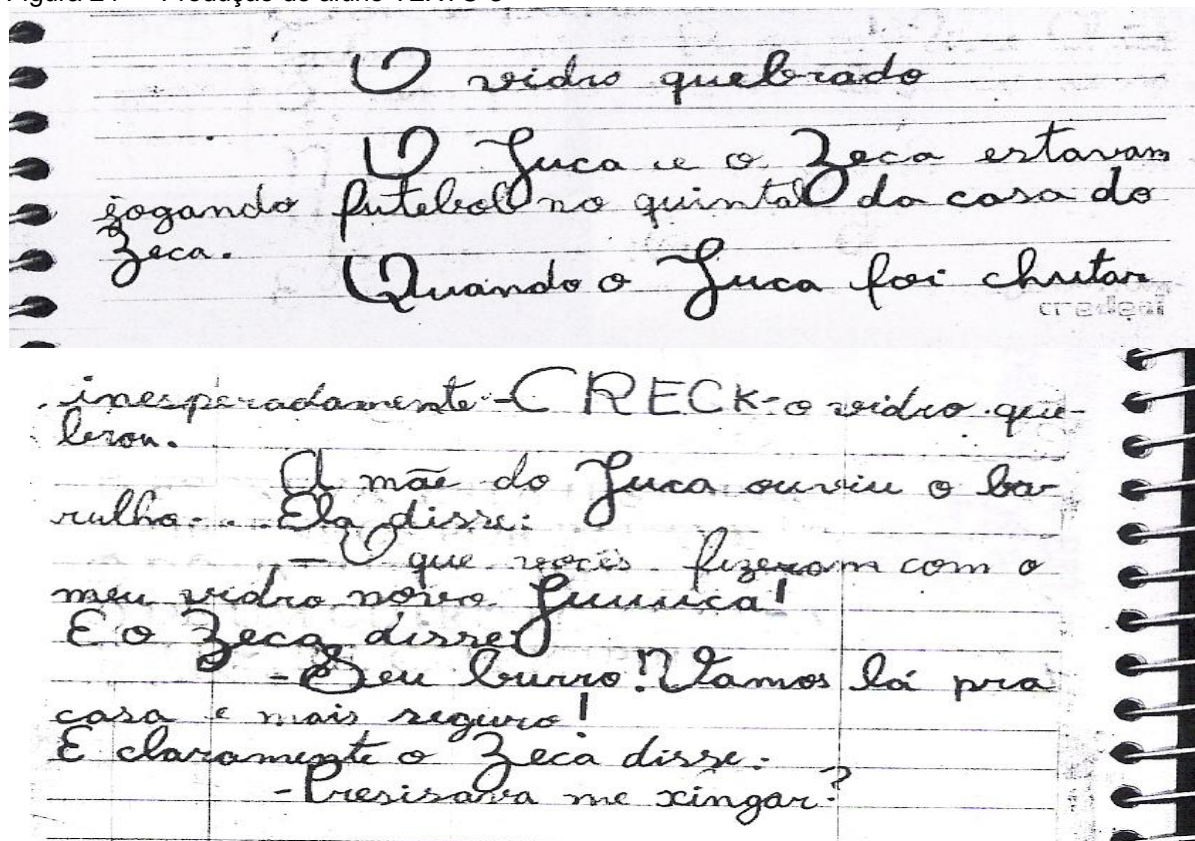 O vidro quebrado
O Juca e o Zeca estavam
jogando futebol no quintal da casa do
Zeca.
Quando o Juca foi chutar
inesperadamente - CRECK - o vidro que-
brou.
A mãe do Juca ouviu o ba-
rulho... Ela disse:
- O que vocês fizeram com o
meu vidro novo Juuuuca!
E o Zeca disse:
- Seu burro! Vamos lá pra
casa é mais seguro!
E claramente o Zeca disse:
- Presisava me xingar?